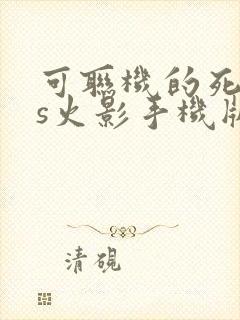 可聯機的死
s火影手機版
清硯